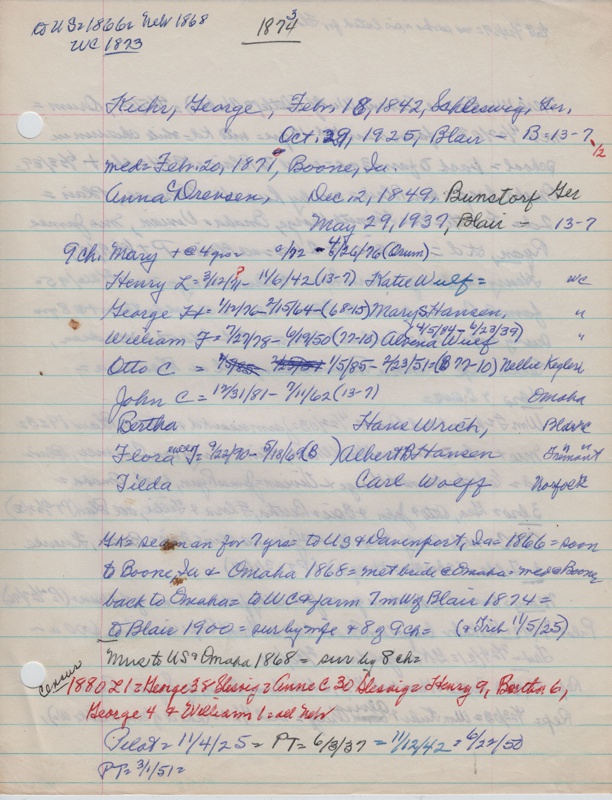 to US= 1866 or Neb 1868
WC 1873
1874 3
Kuhr, George, Febr. 18, 1842, Schleswig, Ger,
Oct. 29, 1925, Blair - B=13-7 1/2
med= Feb. 20, 1871, Boone, Ia.
Anna C Drevsen, Dec, 2, 1849, Bunstorf Ger
May 29, 1937, Blair - 13-7
9 ch. Mary + @ 4 yrs = 2/72 - 4/26/76 (Orum)
Henry L = 3/12/71? - 11/6/42 (13-7) Katie Wulf = WC
George H= 1/12/76 - 2/15/64 - (68-15) Mary S Hansen, "
William F = 7/27/78 - 6/19/50 (77-10) Alvena Wulf (4/5/84 - 6/23/39) "
Otto C = 1/5/85 - 2/23/51 = (B 77-10) Nellie Keglere
John C = 12/31/81 - 7/11/62 (13-7) Omaha
Bertha Hans Wrich, Blair
Flora J= 9/22/90 - 5/18/69 (B ) Albert B Hansen Fremont
Tilda Carl Wolff Norfolk
GK= seaman for 7 yrs = to US & Davenport, Ia = 1866 = soon
to Boone, Ia & Omaha 1868 = met bride @ Omaha = med @ Boone
back to Omaha = to WC & farm 7 m W of Blair 1874 =
to Blair 1900 = sur by wife & 8 of 9 ch = (& Trib 11/5/25)
Mrs= to US & Omaha 1868 = sur by 8 ch=
Census
1880 L1 = George 38 Slesvig = Anne C 30 Slesvig = Henry 9, Bertha 6,
George 4 & William 1 = all Neb
Pilot = 11/4/25 = PT = 6/3/37 = 11/12/42 = 6/22/50
PT= 3/1/51=